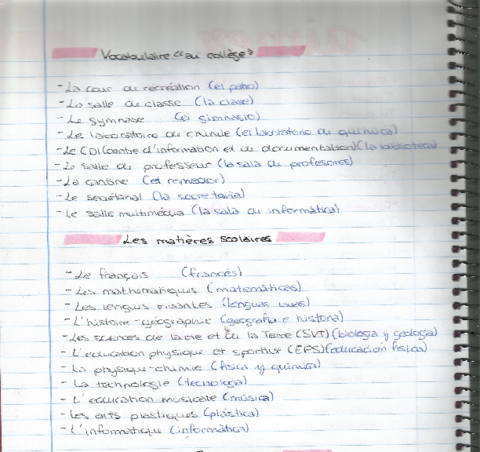 Vocabulaire "au collège"
- La cour du récréation (el patio)
- La salle du classe (la clase)
- Le gymnase (el gimnasio)
- Le laboratoire du chimie (el laboratorio du química)
- Le CDI (centre d'information et du documentation) (la biblioteca)
- La salle du professeur (la sala du profesores)
- La cantine (el comedor)
- Le secrétariat (la secretaria)
- Le salle multimédia (la sala du informática)
Les matières scolaires
- Le français (francés)
- Les mathématiques (matemáticas)
- Les lengus vivantes (lenguas vivas)
- L'histoire-géographie (geografía e historia)
- Les sciences de la vie et du la Terre (SVT) (biología y geología)
- L'education physique et sportive (EPS) (educación física)
- La physique-chimie (física y química)
- La technologie (tecnología)
- L'education musicale (música)
- Les arts plastiques (plástica)
- L'informatique (informática)